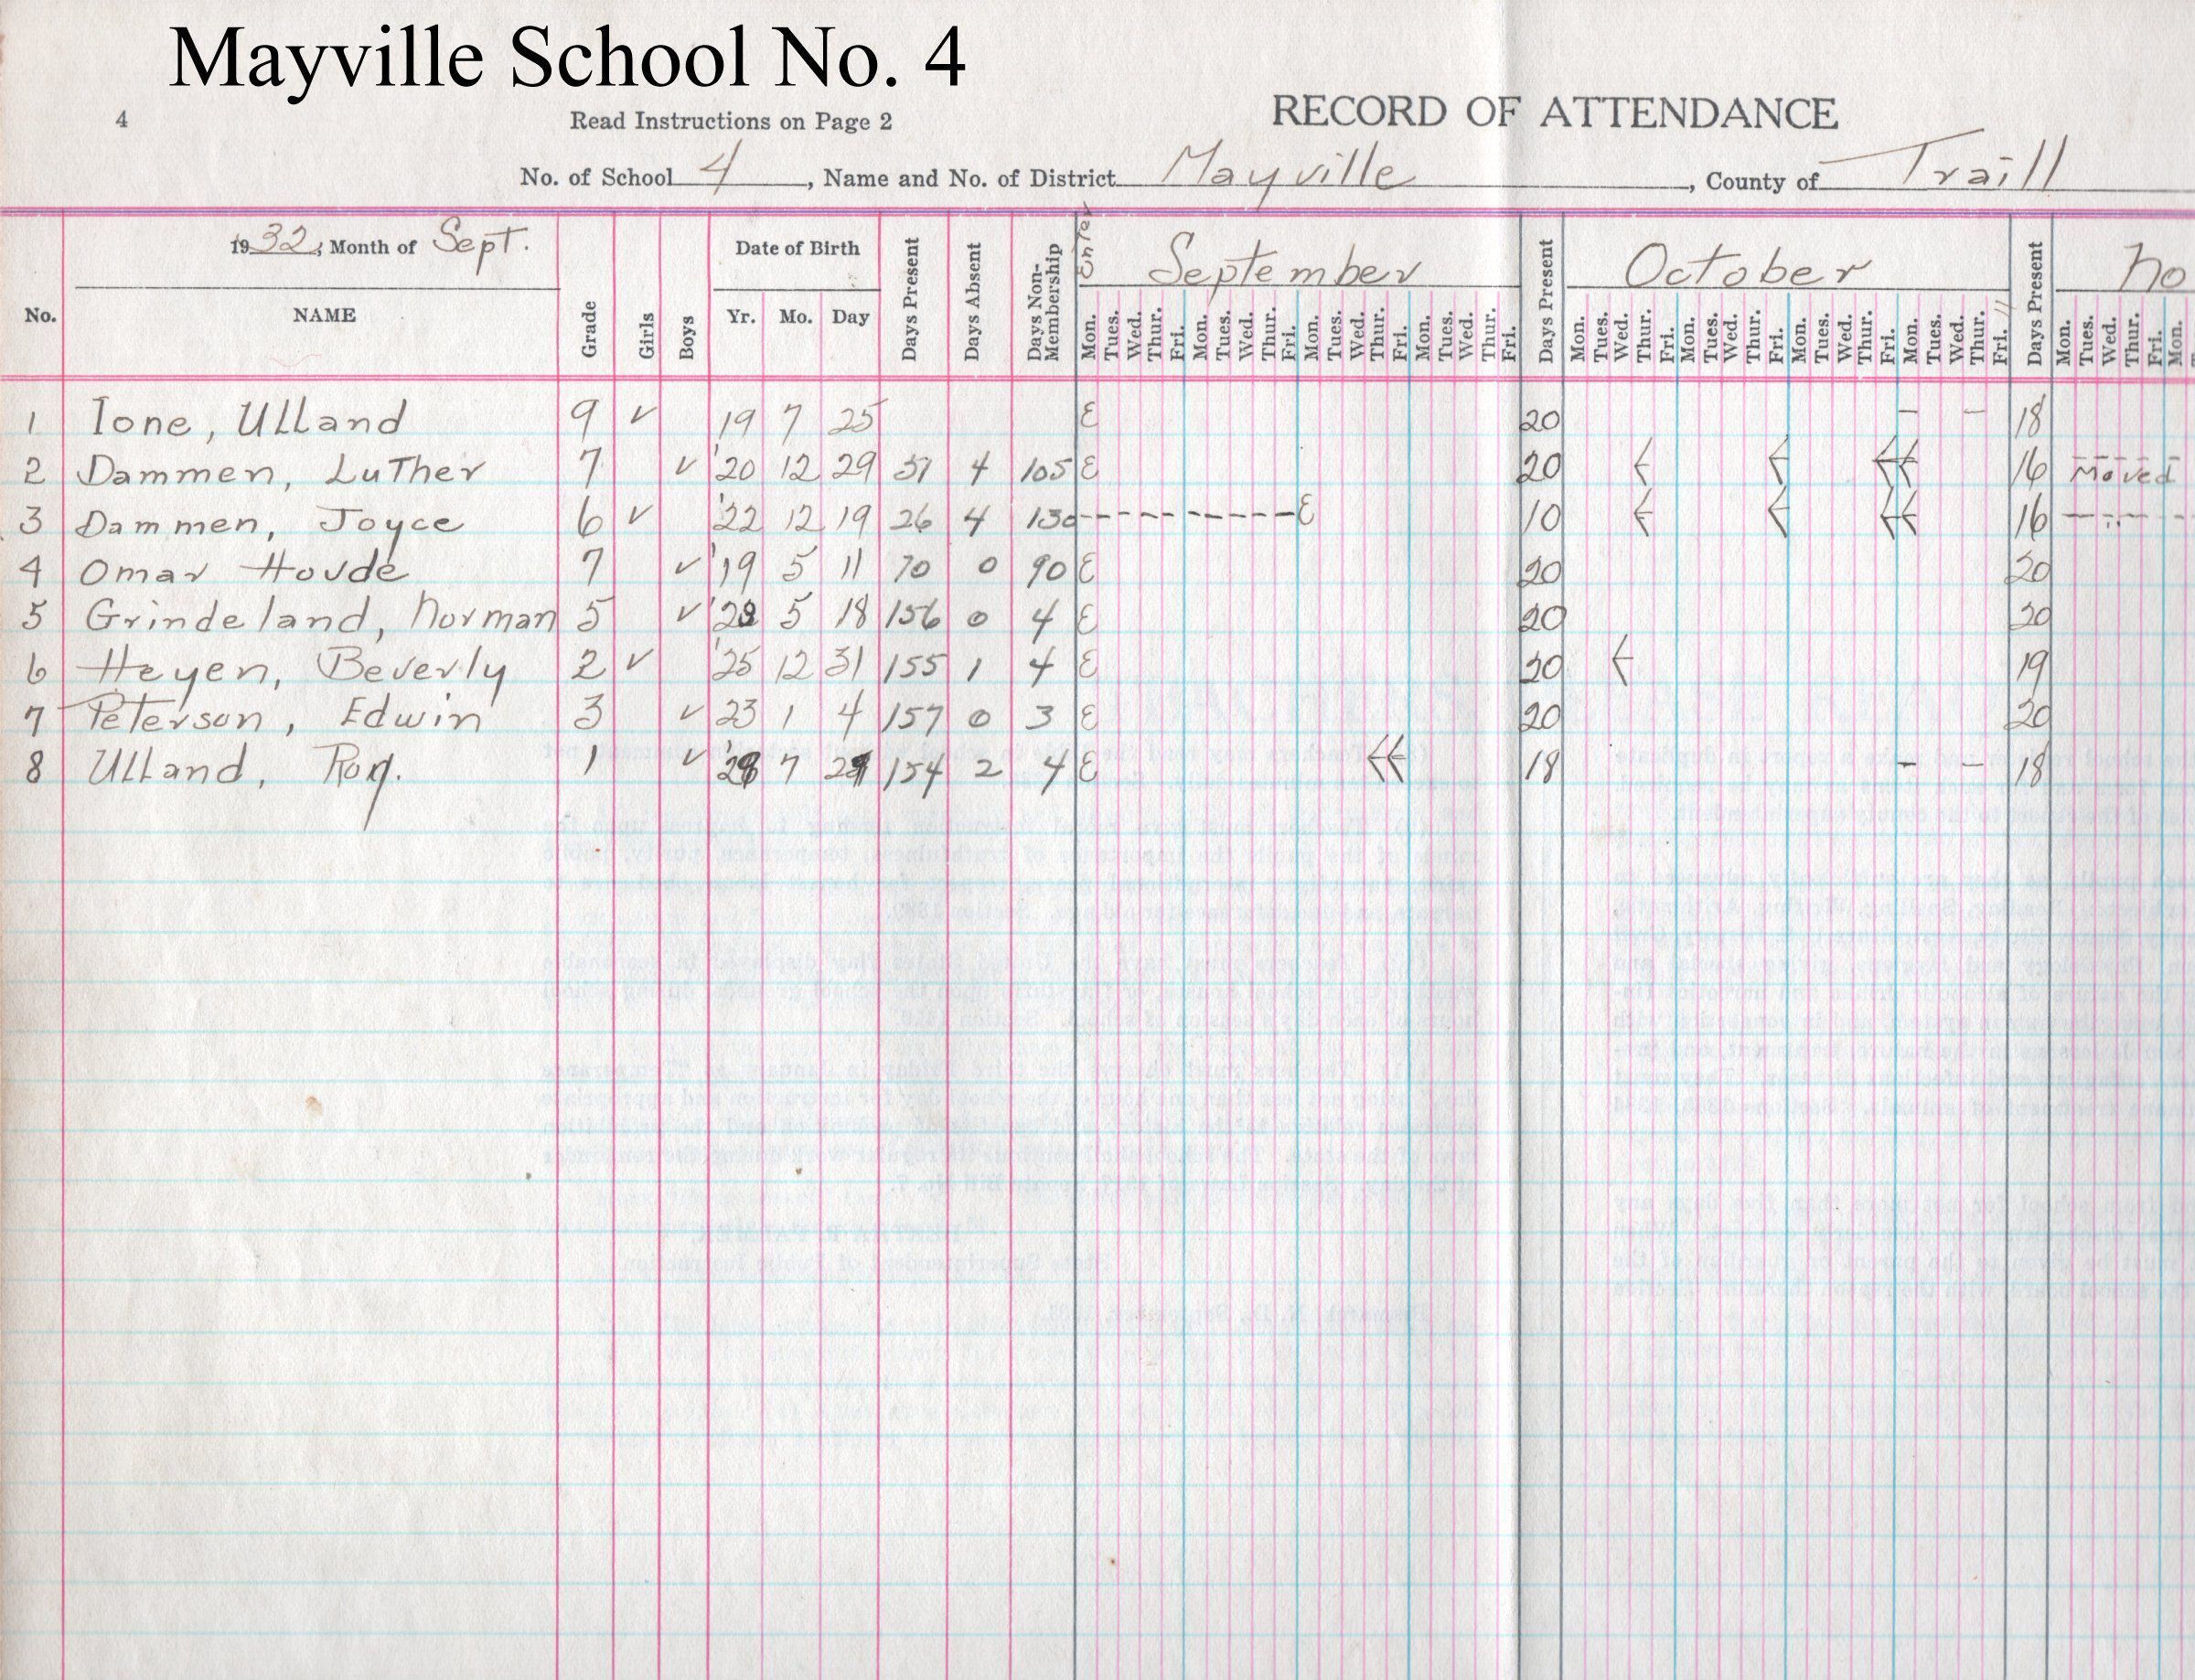 Mayville School No. 4
4 Read Instructions on Page 2 RECORD OF ATTENDANCE
No. of School 4, Name and No. of District Mayville, County of Traill
1932, Month of Sept. Date of Birth Enter September October No
No. NAME Grade Girls Boys Yr. Mo. Day Days Present Days Absent Days Non-Membership Mon. Tues. Wed. Thur. Fri. Mon. Tues. Wed. Thur. Fri. Mon. Tues. Wed. Thur. Fri. Mon. Tues. Wed. Thur. Fri. Days Present Mon. Tues. Wed. Thur. Fri. Mon. Tues. Wed. Thur. Fri. Mon. Tues. Wed. Thur. Fri. Mon. Tues. Wed. Thur. Fri. Days Present Mon. Tues. Wed. Thur. Fri. Mon.
1 Ione, Ulland 9 ✓ 19 7 25 E 20 - - 18
2 Dammen, Luther 7 ✓ '20 12 29 31 4 105 E 20 16 Moved
3 Dammen, Joyce 6 ✓ '22 12 19 26 4 130 ---------- E 10 16
4 Omar Hovde 7 ✓ '19 5 11 70 0 90 E 20 20
5 Grindeland, Norman 5 ✓ 5 18 156 0 4 E 20 20
6 Heyen, Beverly 2 ✓ '25 12 31 155 1 4 E 20 19
7 Peterson, Edwin 3 ✓ 23 1 4 157 0 3 E 20 20
8 Ulland, Roy. 1 ✓ 7 154 2 4 E 18 - - 18